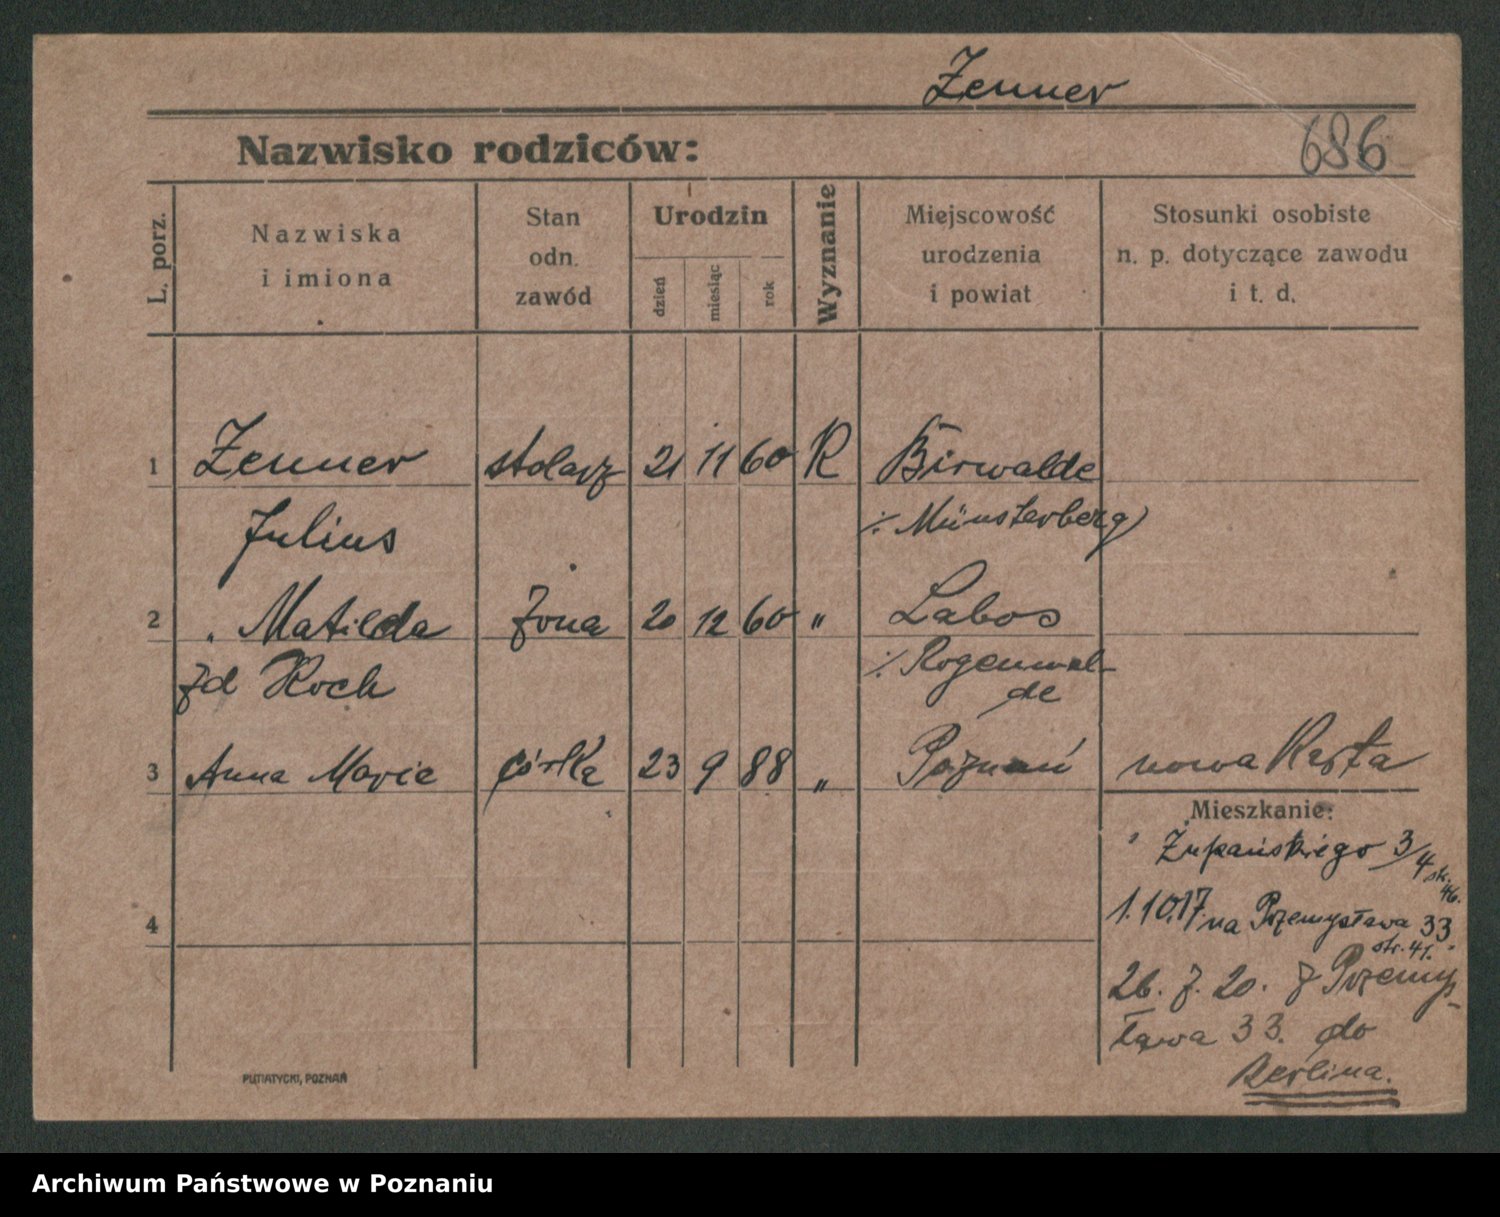 Zenner
Nazwisko rodziców:
686
L. porz.
Nazwiska
i imiona
Stan
odn.
zawód
Urodzin
dzień
miesiąc
rok
Wyznanie
Miejscowość
urodzenia
i powiat
Stosunki osobiste
n. p. dotyczące zawodu
i t. d.
1 Zenner stolarz 21 11 60 R Bärwalde
Julius ·/. Münsterberg)
2 " Matilda żona 20 12 60 " Labos
zd Koch ·/. Rogenwal-
de
3 Anna Marie córka 23 9 88 " Poznań nowa Karta
Mieszkanie:
Żupańskiego 3/4 str. 46.
1.10.17. na Przemysława 33.
str. 41.
4
26. 7. 20. z Przemy-
sława 33. do
Berlina.
PUTIATYCKI, POZNAŃ
Archiwum Państwowe w Poznaniu